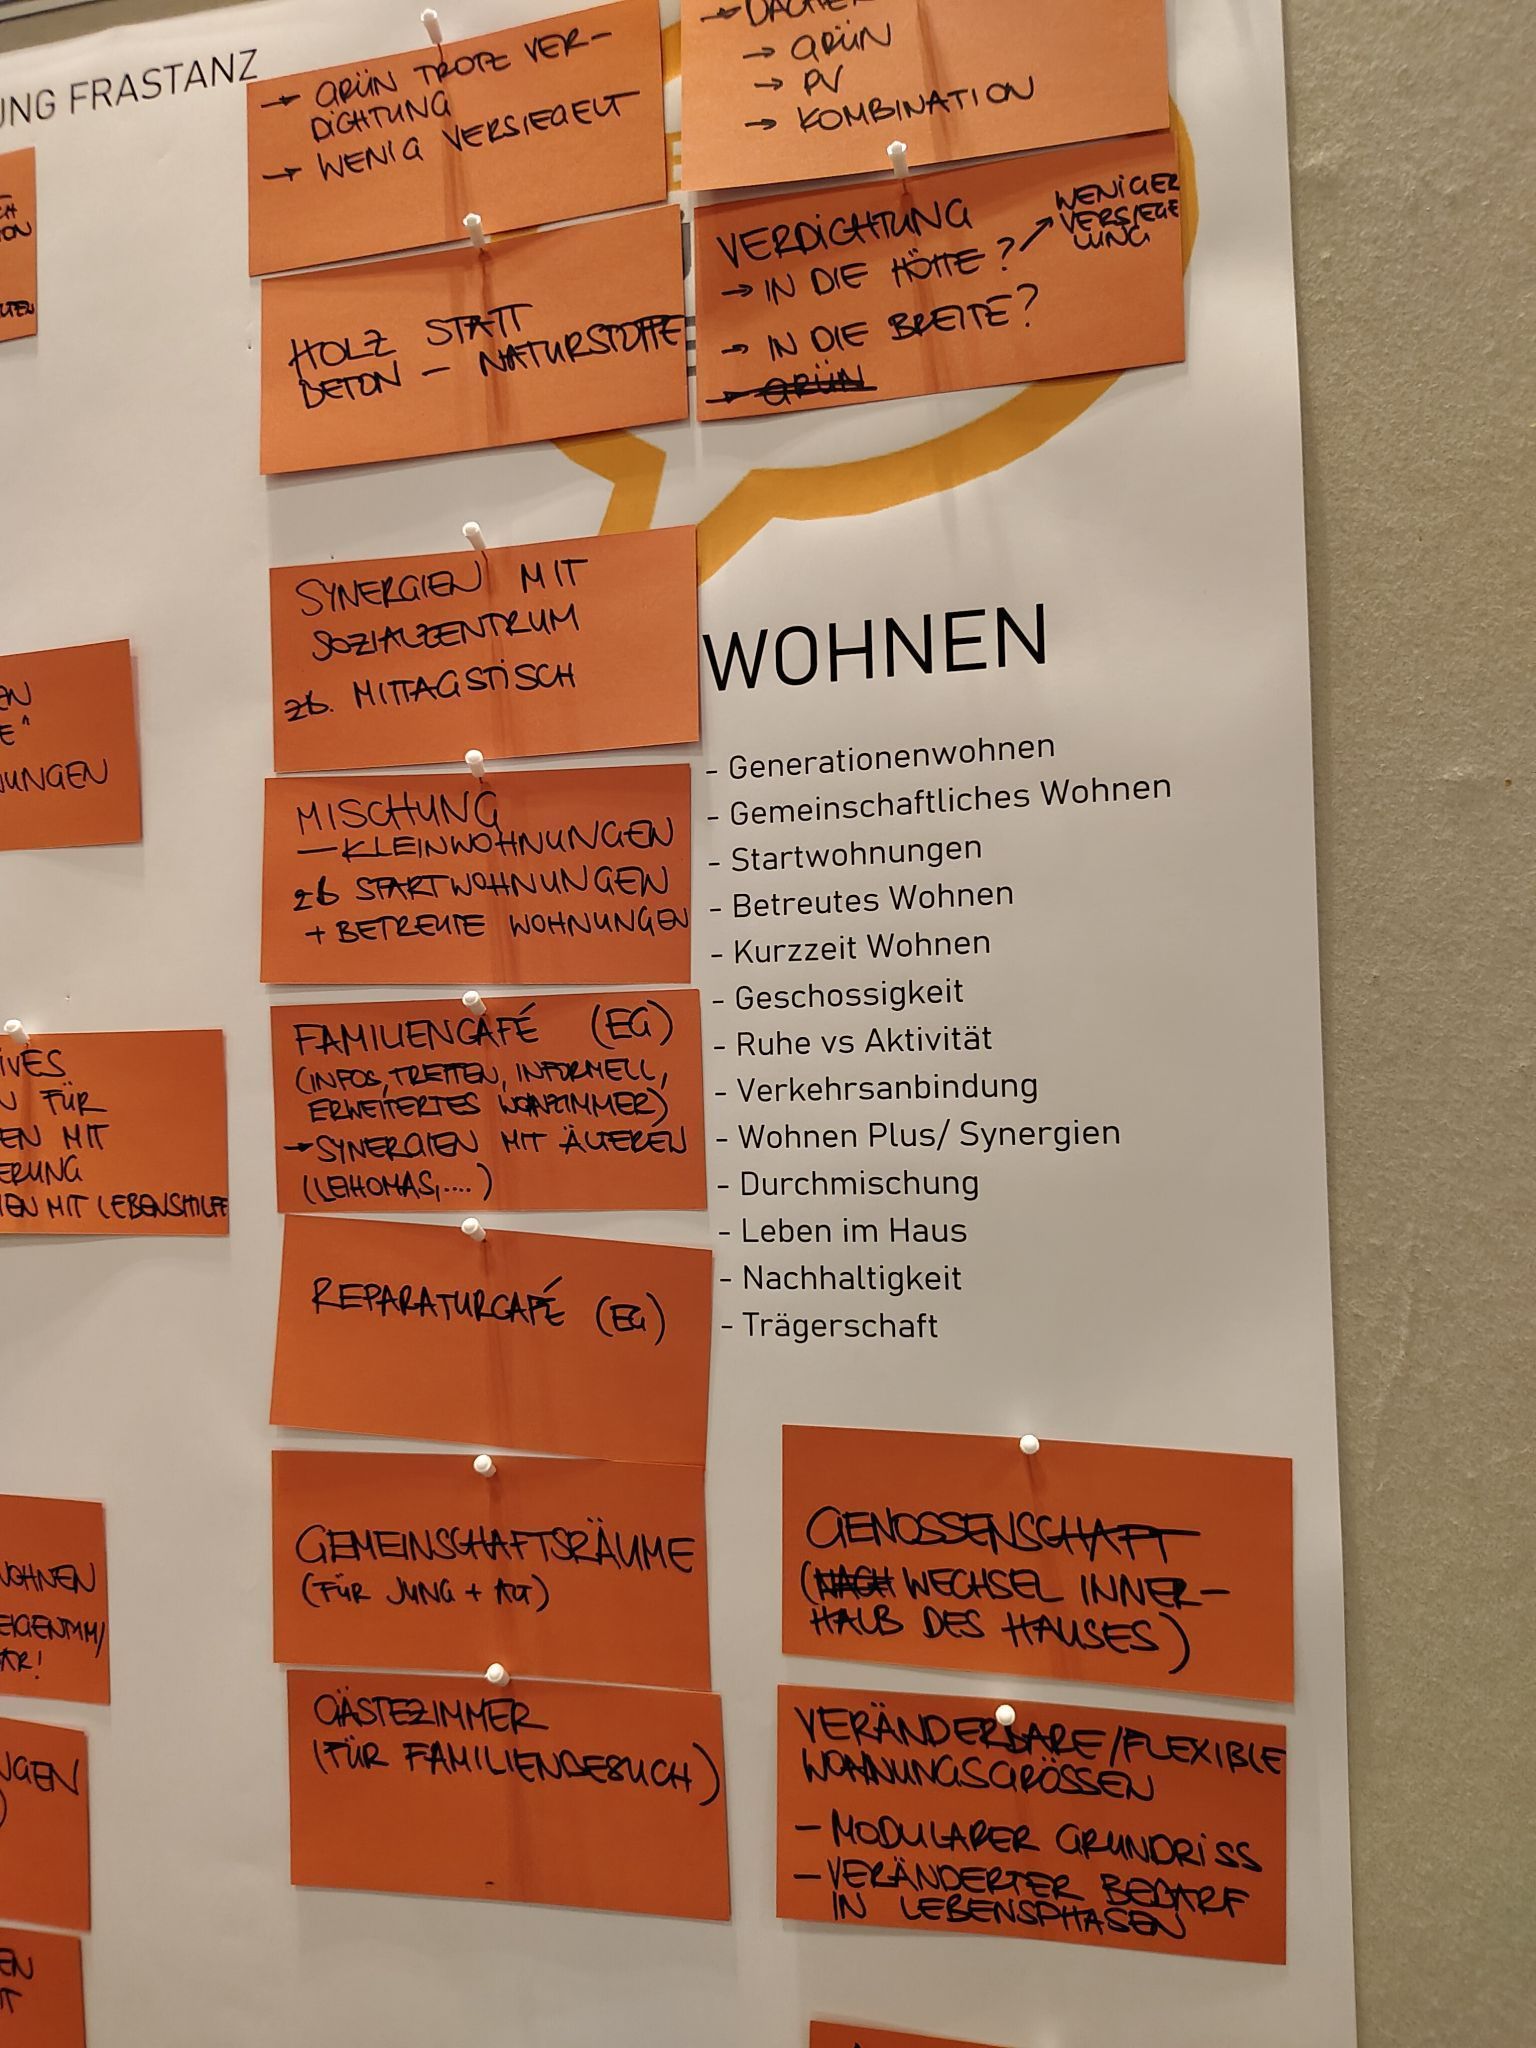 UNG FRASTANZ
→ GRÜN TROTZ VER-
DICHTUNG
→ WENIG VERSIEGELT
→ DÄCHER
→ GRÜN
→ PV
→ KOMBINATION
HOLZ STATT
BETON - NATURSTOFFE
VERDICHTUNG
→ IN DIE HÖHE? ↗ WENIGER
VERSIEGE
LUNG
→ IN DIE BREITE?
→ GRÜN
SYNERGIEN MIT
SOZIALZENTRUM
zb. MITTAGSTISCH
MISCHUNG
- KLEINWOHNUNGEN
zb STARTWOHNUNGEN
+ BETREUTE WOHNUNGEN
FAMILIENCAFÉ (EG)
(INFOS, TREFFEN, INFORMELL,
ERWEITERTES WOHNZIMMER)
→ SYNERGIEN MIT ÄLTEREN
(LEIHOMAS,....)
REPARATURCAFÉ (EG)
GEMEINSCHAFTSRÄUME
(FÜR JUNG + ALT)
GÄSTEZIMMER
(FÜR FAMILIENBESUCH)
WOHNEN
- Generationenwohnen
- Gemeinschaftliches Wohnen
- Startwohnungen
- Betreutes Wohnen
- Kurzzeit Wohnen
- Geschossigkeit
- Ruhe vs Aktivität
- Verkehrsanbindung
- Wohnen Plus/ Synergien
- Durchmischung
- Leben im Haus
- Nachhaltigkeit
- Trägerschaft
GENOSSENSCHAFT
(NACH WECHSEL INNER-
HALB DES HAUSES)
VERÄNDERBARE/FLEXIBLE
WOHNUNGSGRÖSSEN
- MODULARER GRUNDRISS
- VERÄNDERTER BEDARF
IN LEBENSPHASEN
UNGEN
IVES
N FÜR
EN MIT
ERUNG
IEN MIT LEBENSHILFE
WOHNEN
EIGENTUM/